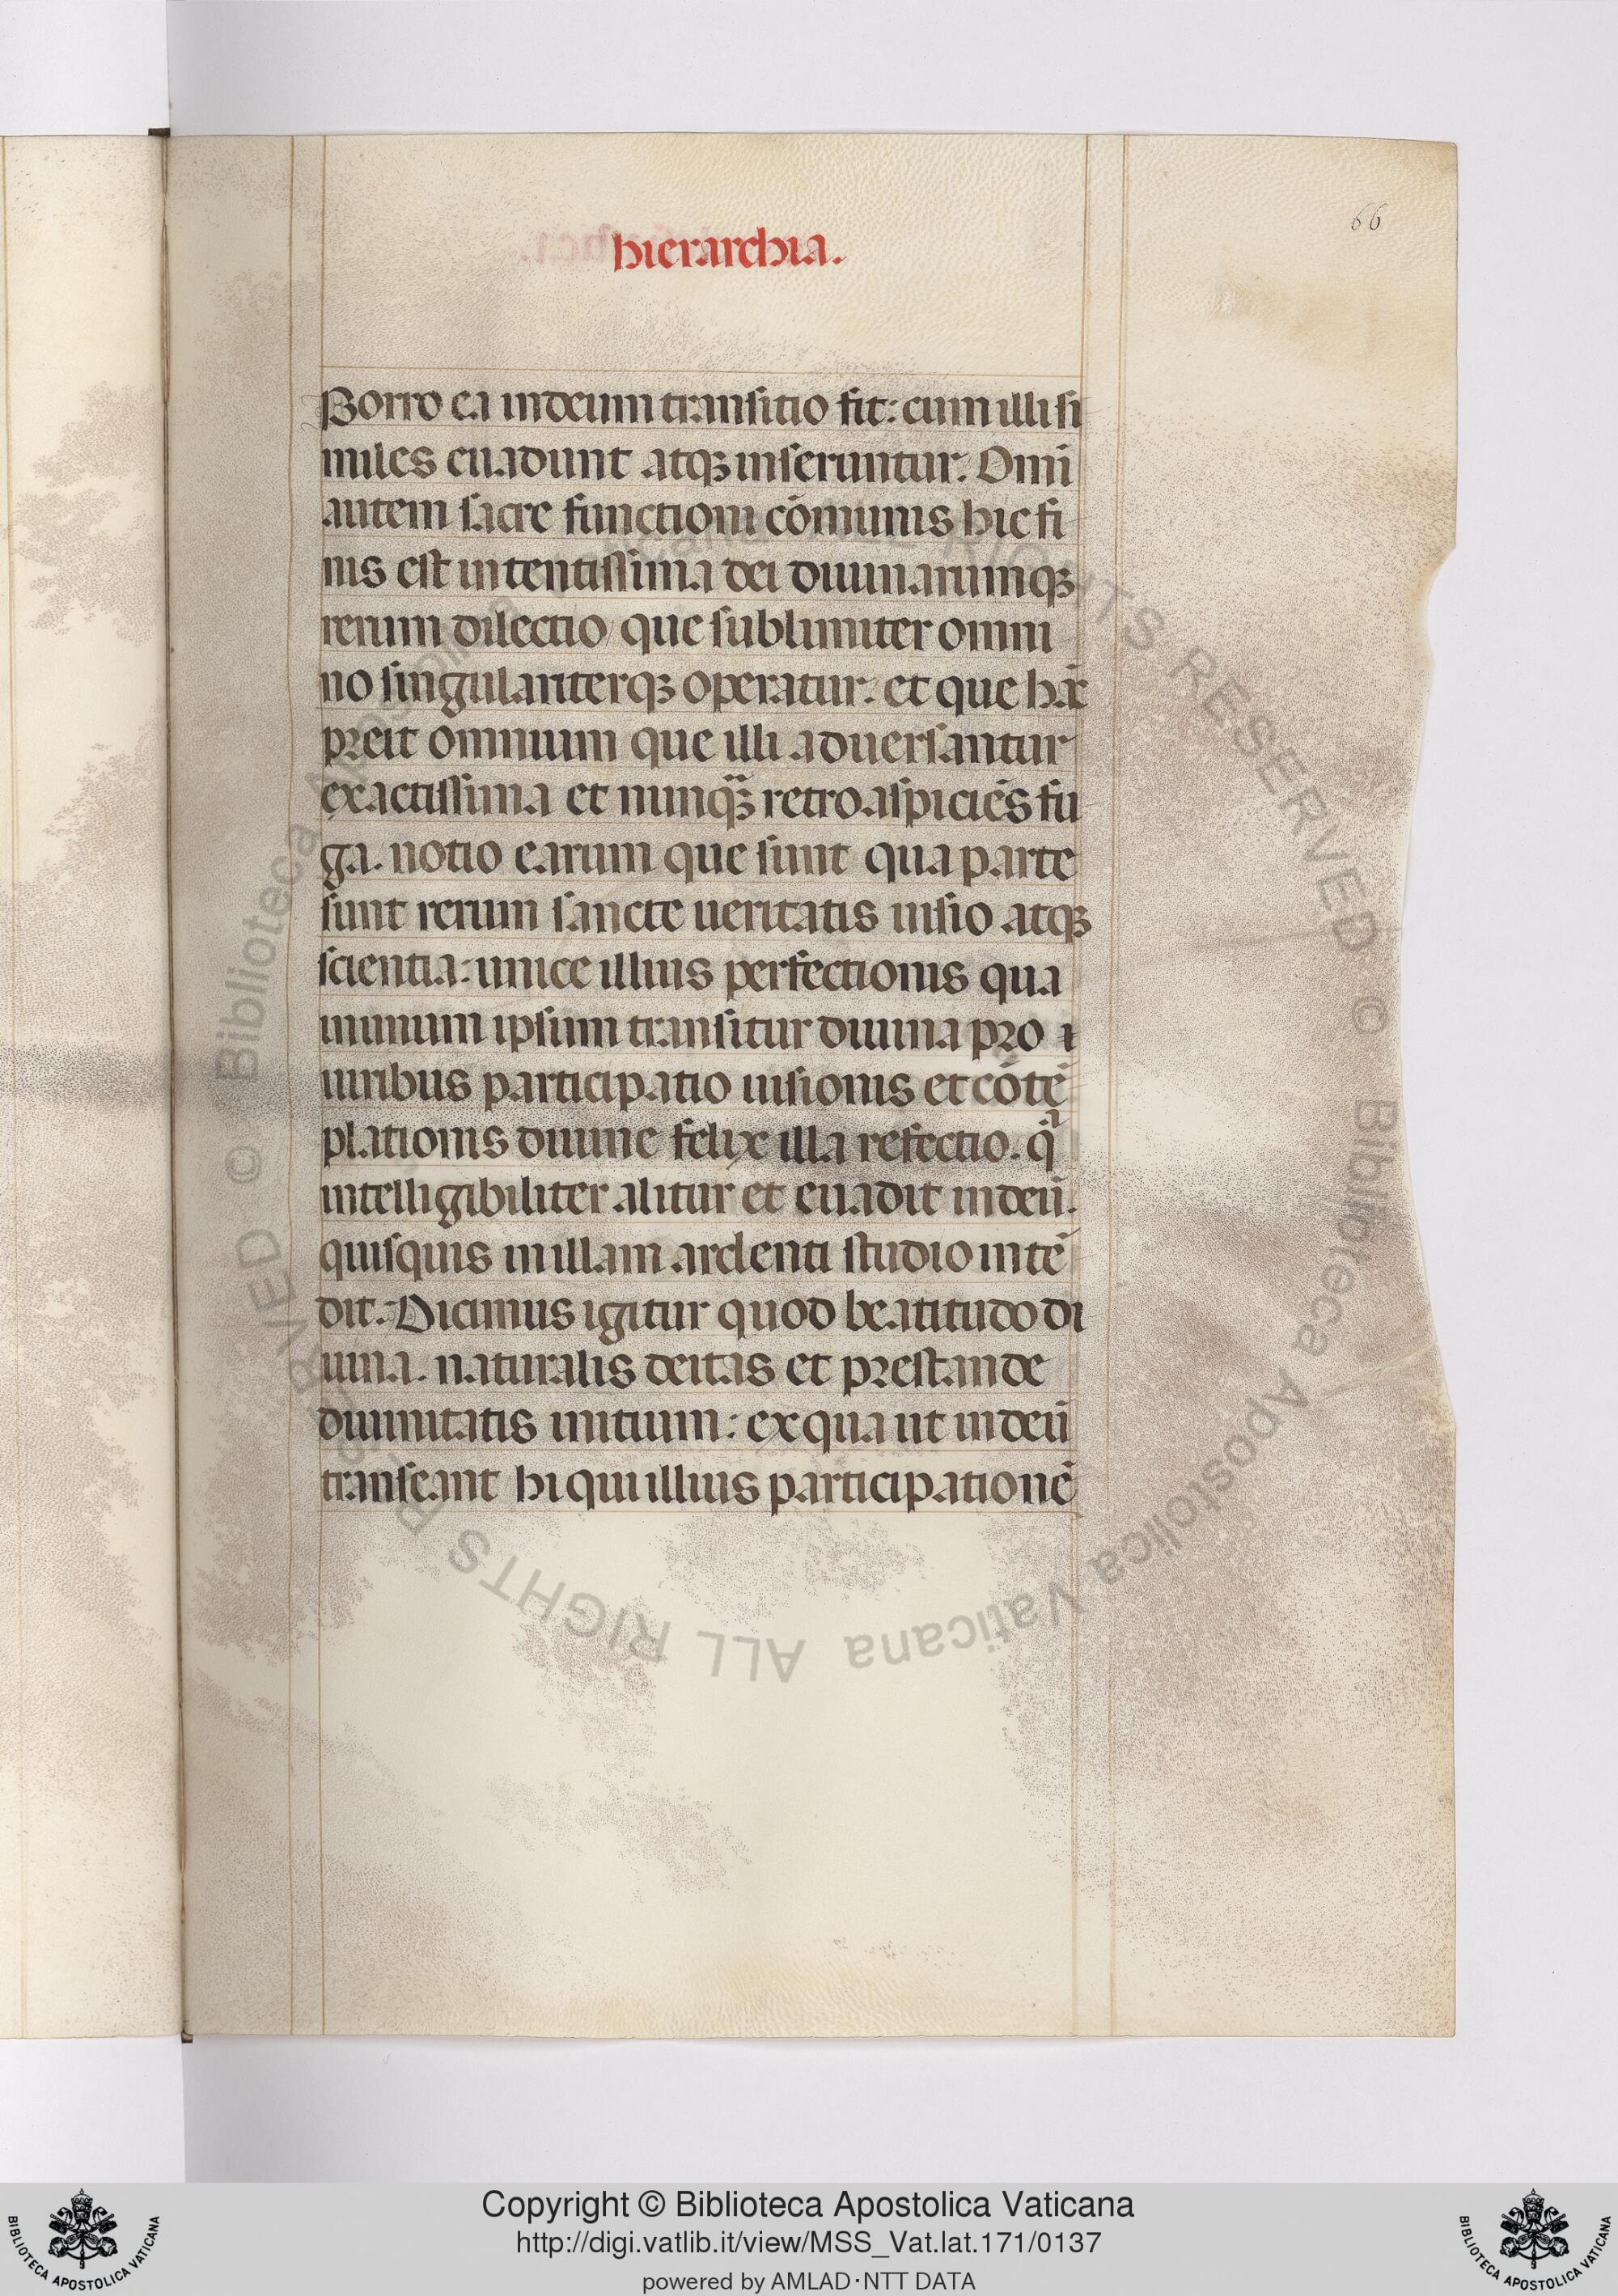 66
hierarchia.
Porro ea in deum transitio fit: cum illi si
miles euadunt atqꝫ inseruntur. Omī
autem sacre functioni cōmunis hic fi
nis est intentissima dei diuinarumqꝫ
rerum dilectio/ que sublimiter omni
no singulariterqꝫ operatur. et que hāc
preit omnium que illi aduersantur
exactissima et nunqꝫ̄ retro aspiciēs fu
ga. notio earum que sunt qua parte
sunt rerum sancte ueritatis uisio atqꝫ
scientia: unice illius perfectionis qua
inunum ipsum transitur diuina pro
uiribus participatio uisionis et cōtē
plationis diuine felix illa refectio. qͣ
intelligibiliter alitur et euadit in deū.
quisquis in illam ardenti studio intē
dit. Dicimus igitur quod beatitudo di
uina. naturalis deitas et prestande
diuinitatis initium: ex qua ut in deū
transeant hi qui illius participationē
Copyright © Biblioteca Apostolica Vaticana
http://digi.vatlib.it/view/MSS_Vat.lat.171/0137
powered by AMLAD·NTT DATA
BIBLIOTECA APOSTOLICA VATICANA
BIBLIOTECA APOSTOLICA VATICANA